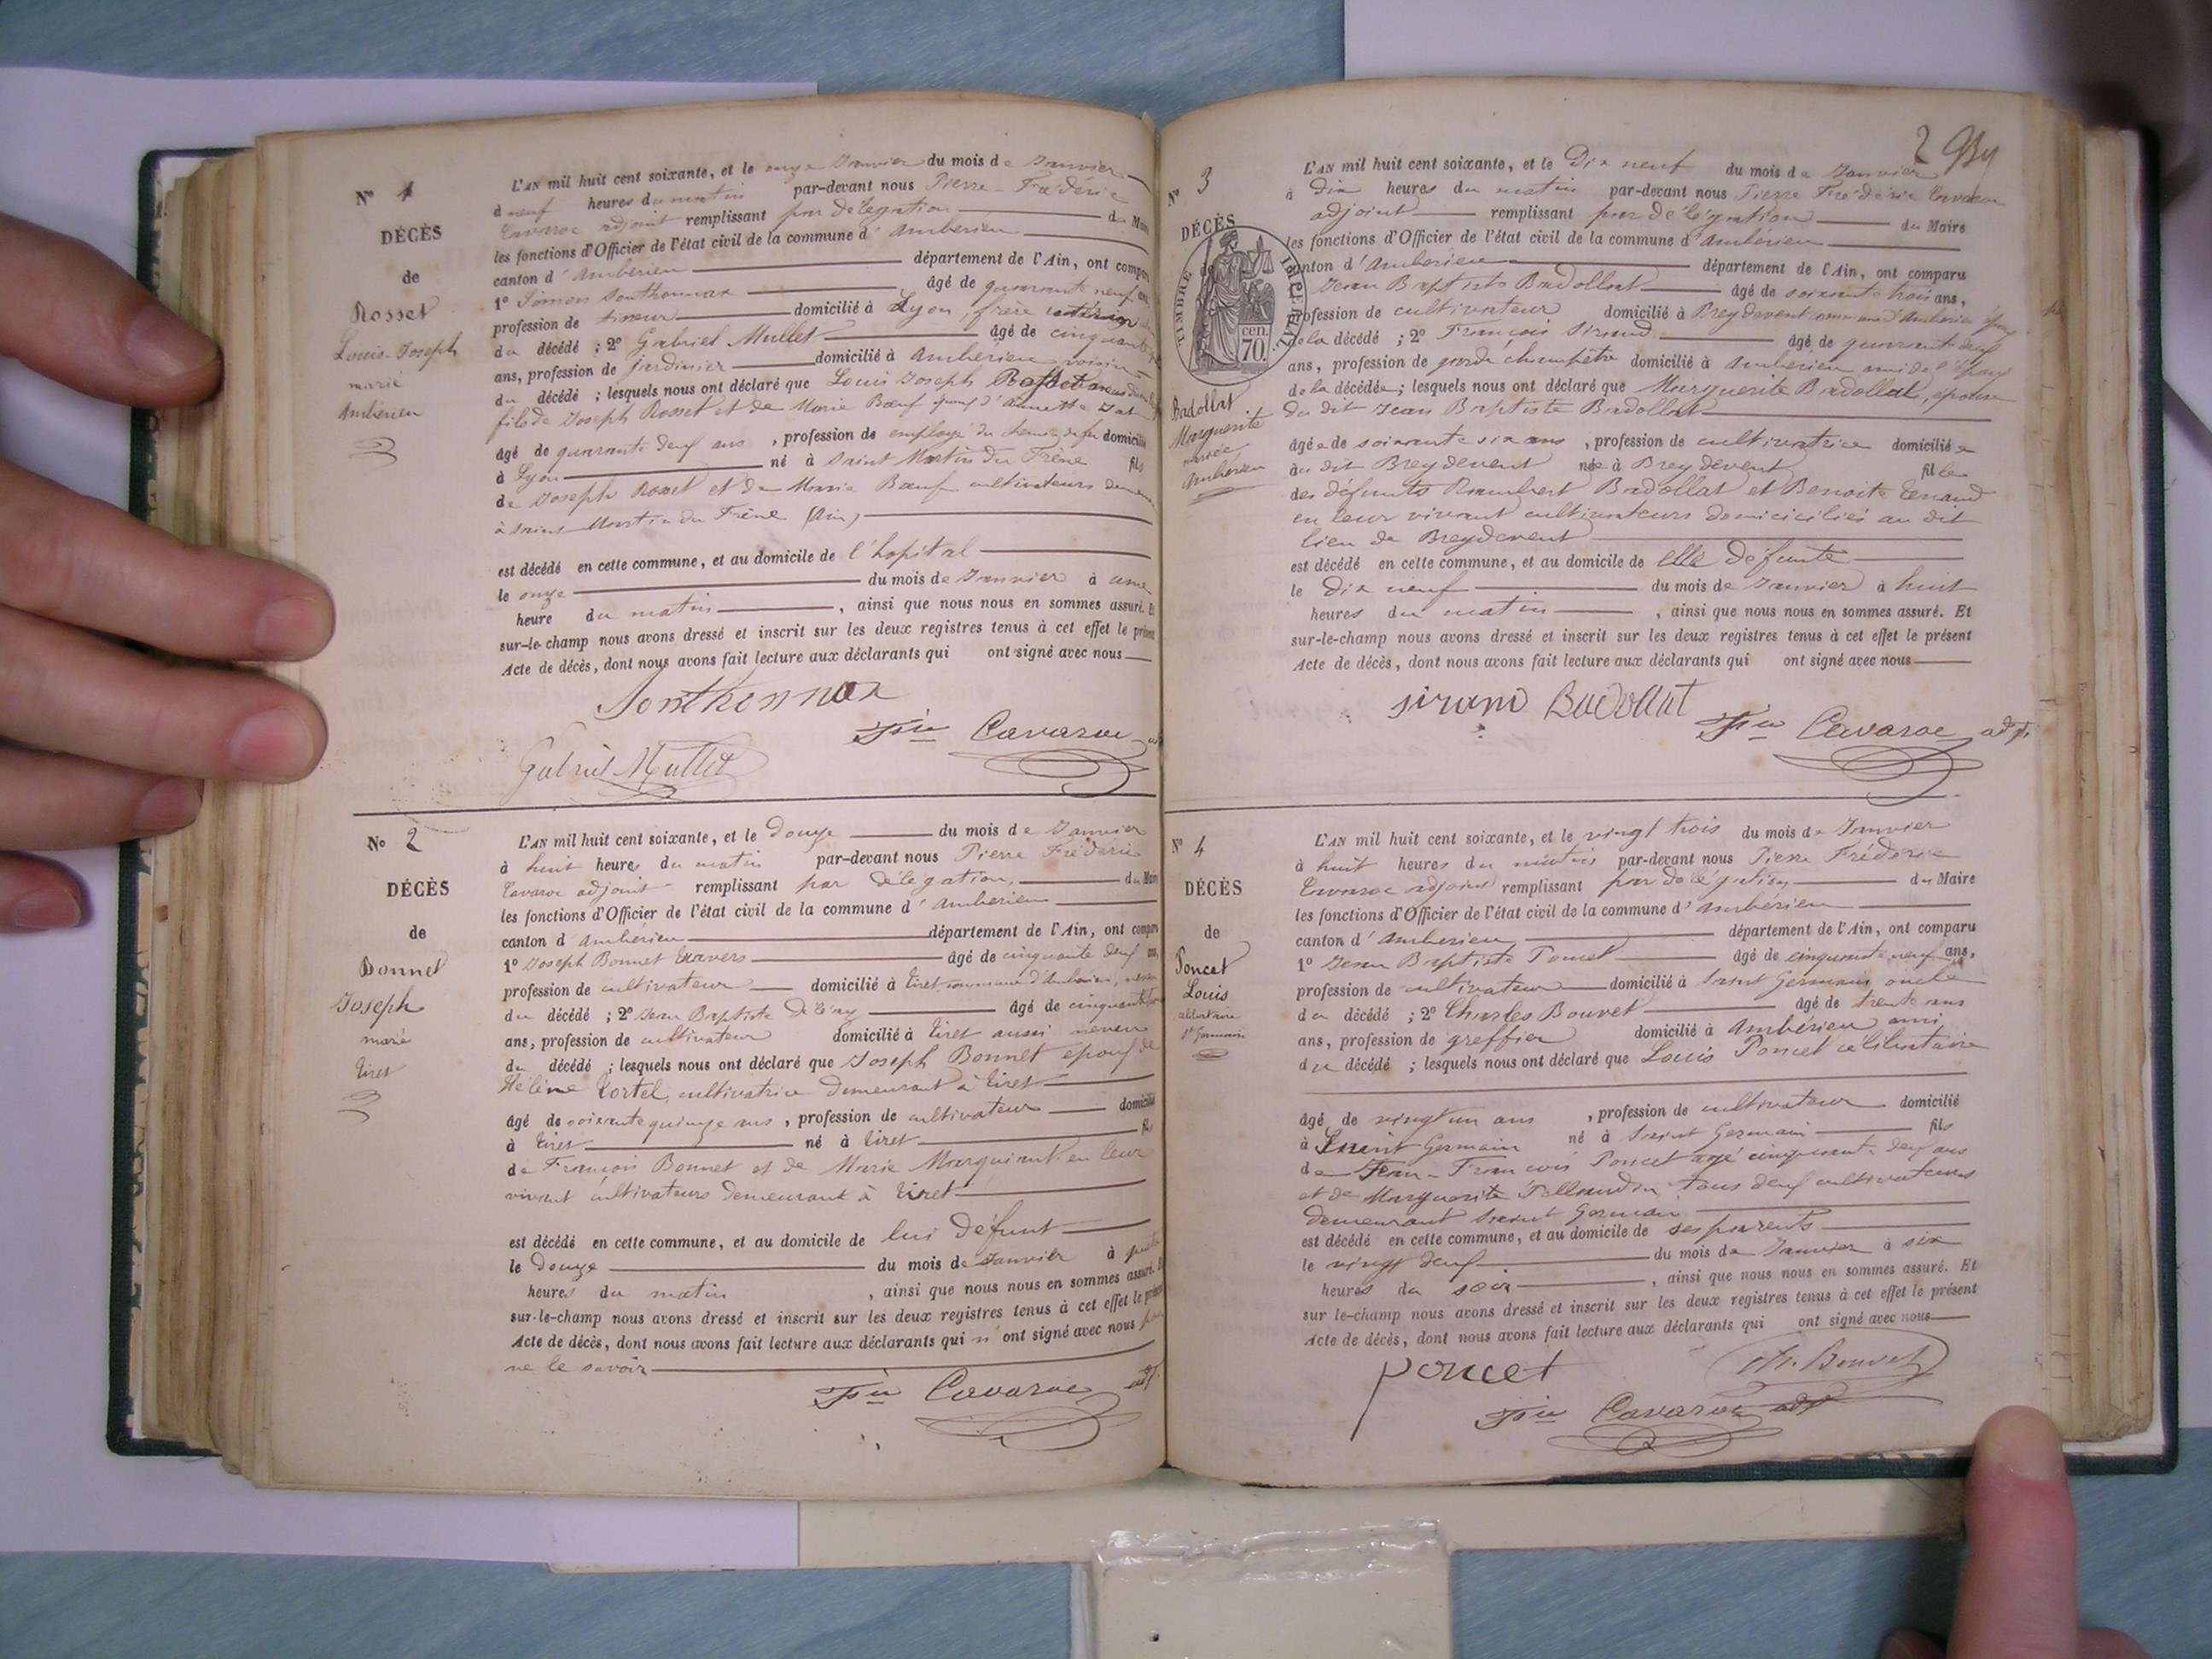 N° 1
DÉCÈS
de
Rosset
Louis-Joseph
marié
Ambérieu
L'AN mil huit cent soixante, et le onze Janvier du mois de Janvier
à neuf heures du matin par-devant nous Pierre-Frédéric
Cavaroc adjoint remplissant par délégation du Maire
les fonctions d'Officier de l'état civil de la commune d'Ambérieu
canton d'Ambérieu département de l'Ain, ont comparu
1° Simon Sonthonnax âgé de quarante neuf ans
profession de domicilié à Lyon, frère utérin
du décédé ; 2° Gabriel Mullet âgé de cinquante
ans, profession de jardinier domicilié à Ambérieu voisin
du décédé ; lesquels nous ont déclaré que Louis Joseph Rosset
fils de Joseph Rosset et de Marie Bœuf époux d'Annette
âgé de quarante deux ans, profession de employé du chemin de fer domicilié
à Lyon né à Saint Martin du Frêne fils
de Joseph Rosset et de Marie Bœuf cultivateurs
à Saint Martin du Frêne (Ain)
est décédé en cette commune, et au domicile de l'hopital
le onze du mois de Janvier à une
heure du matin, ainsi que nous nous en sommes assuré. Et
sur-le-champ nous avons dressé et inscrit sur les deux registres tenus à cet effet le présent
Acte de décès, dont nous avons fait lecture aux déclarants qui ont signé avec nous
Sonthonnax
Fric Cavaroc
Gabriel Mullet
N° 2
DÉCÈS
de
Bonnet
Joseph
marié
Tiret
L'AN mil huit cent soixante, et le douze du mois de Janvier
à huit heures du matin par-devant nous Pierre Frédéric
Cavaroc adjoint remplissant par délégation, du Maire
les fonctions d'Officier de l'état civil de la commune d'Ambérieu
canton d'Ambérieu département de l'Ain, ont comparu
1° Joseph Bonnet âgé de cinquante deux ans,
profession de cultivateur domicilié à Tiret commune d'Ambérieu, neveu
du décédé ; 2° Jean Baptiste âgé de cinquante
ans, profession de cultivateur domicilié à Tiret aussi neveu
du décédé ; lesquels nous ont déclaré que Joseph Bonnet époux de
Hélène Tortel, cultivatrice demeurant à Tiret
âgé de soixante quinze ans, profession de cultivateur domicilié
à Tiret né à Tiret fils
de François Bonnet et de Marie en leur
vivant cultivateurs demeurant à Tiret
est décédé en cette commune, et au domicile de lui défunt
le douze du mois de Janvier à
heures du matin, ainsi que nous nous en sommes assuré. Et
sur-le-champ nous avons dressé et inscrit sur les deux registres tenus à cet effet le présent
Acte de décès, dont nous avons fait lecture aux déclarants qui n'ont signé avec nous pour
ne le savoir
Fric Cavaroc adj.
2
N° 3
DÉCÈS
de
TIMBRE IMPÉRIAL
70 cen.
Badollat
Marguerite
mariée
Ambérieu
L'AN mil huit cent soixante, et le Dix neuf du mois de Janvier
à dix heures du matin par-devant nous Pierre Frédéric Cavaroc
adjoint remplissant par délégation du Maire
les fonctions d'Officier de l'état civil de la commune d'Ambérieu
canton d'Ambérieu département de l'Ain, ont comparu
Jean Baptiste Badollat âgé de soixante trois ans,
profession de cultivateur domicilié à Breydevent commune d'Ambérieu époux
de la décédé ; 2° François Sirand âgé de quarante deux
ans, profession de garde champêtre domicilié à Ambérieu ami de l'époux
de la décédée ; lesquels nous ont déclaré que Marguerite Badollat, épouse
du dit Jean Baptiste Badollat
âgée de soixante six ans, profession de cultivatrice domiciliée
au dit Breydevent née à Breydevent fille
des défunts Rambert Badollat et Benoite Tenand
en leur vivant cultivateurs domiciciliés au dit
lieu de Breydevent
est décédé en cette commune, et au domicile de elle défunte
le dix neuf du mois de Janvier à huit
heures du matin, ainsi que nous nous en sommes assuré. Et
sur-le-champ nous avons dressé et inscrit sur les deux registres tenus à cet effet le présent
Acte de décès, dont nous avons fait lecture aux déclarants qui ont signé avec nous
Sirand Badollat
Fric Cavaroc adj.
N° 4
DÉCÈS
de
Poncet
Louis
célibataire
St Germain
L'AN mil huit cent soixante, et le vingt trois du mois de Janvier
à huit heures du matin par-devant nous Pierre Frédéric
Cavaroc adjoint remplissant par délégation du Maire
les fonctions d'Officier de l'état civil de la commune d'Ambérieu
canton d'Ambérieu département de l'Ain, ont comparu
1° Jean Baptiste Poncet âgé de cinquante neuf ans,
profession de cultivateur domicilié à Saint Germain oncle
du décédé ; 2° Charles Bouvet âgé de trente ans
ans, profession de greffier domicilié à Ambérieu ami
du décédé ; lesquels nous ont déclaré que Louis Poncet célibataire
âgé de vingt un ans, profession de cultivateur domicilié
à Saint Germain né à Saint Germain fils
de Jean-François Poncet agé cinquante deux ans
et de Marguerite tous deux cultivateurs
demeurant Saint Germain
est décédé en cette commune, et au domicile de ses parents
le vingt deux du mois de Janvier à six
heures du soir, ainsi que nous nous en sommes assuré. Et
sur le-champ nous avons dressé et inscrit sur les deux registres tenus à cet effet le présent
Acte de décès, dont nous avons fait lecture aux déclarants qui ont signé avec nous
Poncet
Ch. Bouvet
Fric Cavaroc adj